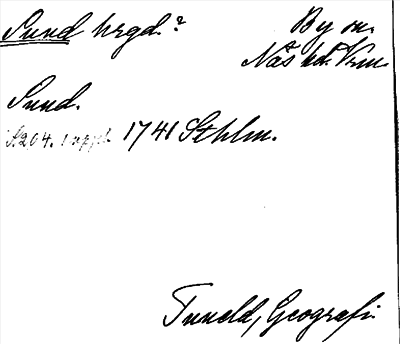 Sund hrgd.?
By sn.
Näs hd. Vrm.
Sund.
S. 204. 1 uppl. 1741 Sthlm.
Tuneld, Geografi.